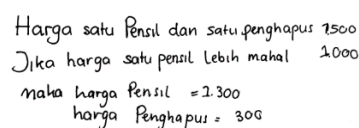 Harga satu Pensil dan satu penghapus 1500
Jika harga satu pensil Lebih mahal 1000
maka harga Pensil = 1.300
harga Penghapus = 300